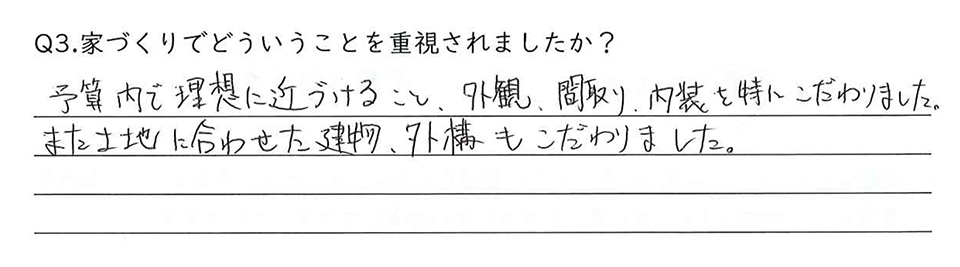 Q3.家づくりでどういうことを重視されましたか？
予算内で理想に近づけること、外観、間取り、内装を特にこだわりました。
また土地に合わせた建物、外構もこだわりました。